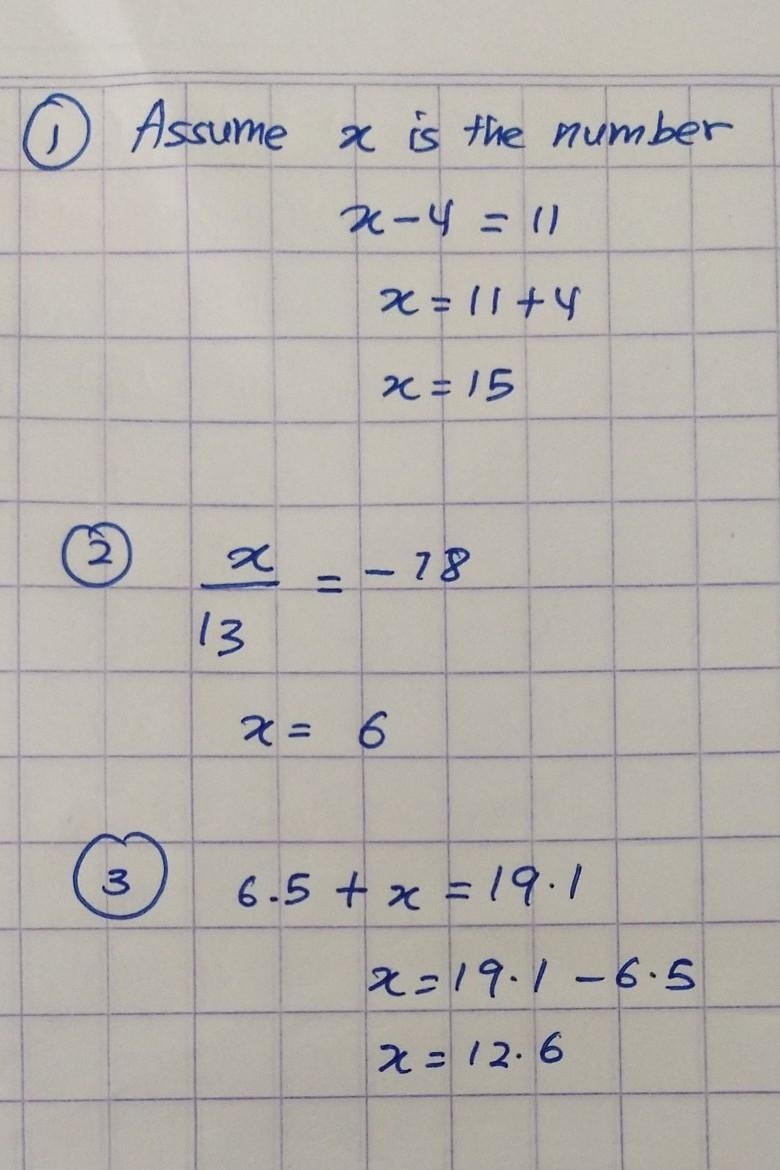 ① Assume x is the number
x - 4 = 11
x = 11 + 4
x = 15
② x/13 = -78
x = 6
③ 6.5 + x = 19.1
x = 19.1 - 6.5
x = 12.6